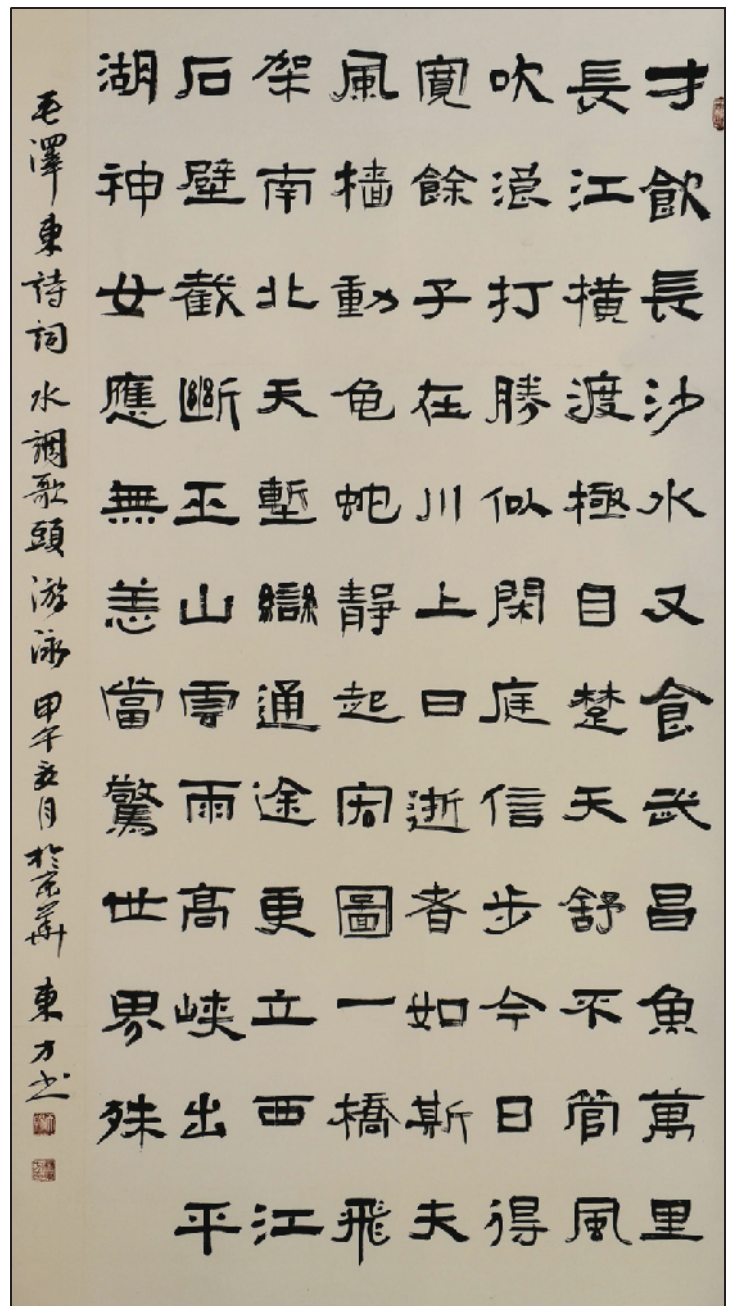 才飲長沙水又食武昌魚萬里
長江橫渡極目楚天舒不管風
吹浪打勝似閑庭信步今日得
寬餘子在川上曰逝者如斯夫
風檣動龜蛇靜起宏圖一橋飛
架南北天塹變通途更立西江
石壁截斷巫山雲雨高峽出平
湖神女應無恙當驚世界殊
毛澤東詩詞 水調歌頭 游泳 甲午月於京華 東方书